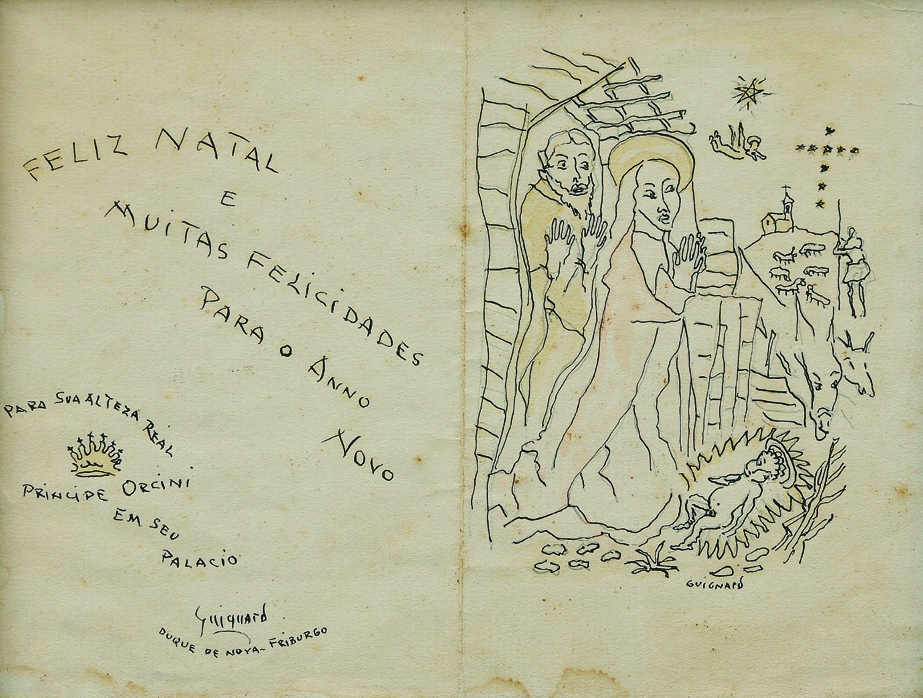 FELIZ NATAL
E
MUITAS FELICIDADES
PARA O ANNO
NOVO
PARA SUA ALTEZA REAL
PRINCIPE ORCINI
EM SEU
PALACIO
Guignard
DUQUE DE NOVA-FRIBURGO
GUIGNARD